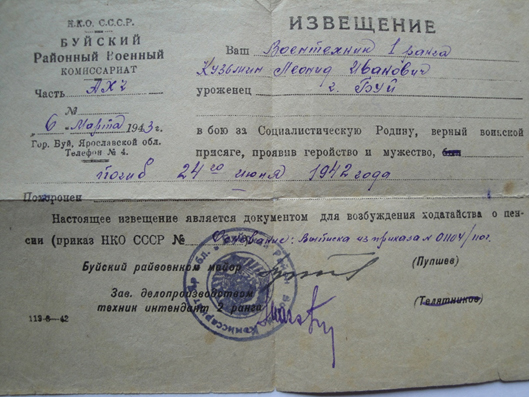 Н.К.О. С.С.С.Р.
БУЙСКИЙ
Районный Военный
КОМИССАРИАТ
Часть АХЧ
№
6 Марта 1943 г.
Гор. Буй, Ярославской обл.
Телефон № 4.
ИЗВЕЩЕНИЕ
Ваш Воентехник 1 ранга
Кузьмин Леонид Иванович
уроженец г. Буй
в бою за Социалистическую Родину, верный воинской
присяге, проявив геройство и мужество,
погиб 24го июня 1942 года
Похоронен
Настоящее извещение является документом для возбуждения ходатайства о пен-
сии (приказ НКО СССР № Основание: Выписка из приказа № 01104/пог.
Буйский райвоенком майор (Пупшев)
Зав. делопроизводством
техник интендант 2 ранга (Телятников)
42